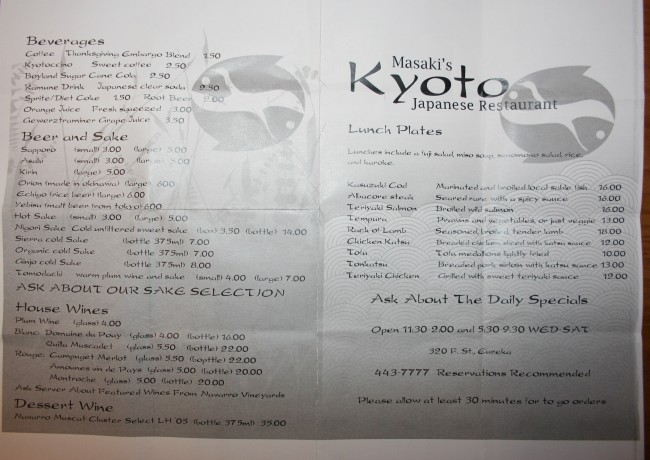 Beverages
Coffee Thanksgiving Embargo Blend 1.50
Kyotoccino Sweet coffee 2.50
Boyland Sugar Cane Cola 2.50
Ramune Drink Japanese clear soda 2.50
Sprite/Diet Coke 1.50 Root Beer 2.00
Orange Juice Fresh squeezed 3.00
Gewerztraminer Grape Juice 3.50
Beer and Sake
Sapporo (small) 3.00 (large) 5.00
Asahi (small) 3.00 (large) 5.00
Kirin (large) 5.00
Orion (made in okinawa) (large) 6.00
Echigo (rice beer) (large) 6.00
Yebisu (malt beer from tokyo) 6.00
Hot Sake (small) 3.00 (large) 5.00
Nigori Sake Cold unfiltered sweet sake (box) 3.50 (bottle) 14.00
Sierra cold Sake (bottle 375ml) 7.00
Organic cold Sake (bottle 375ml) 7.00
Ginjo cold Sake (bottle 375ml) 8.00
Tomodachi warm plum wine and sake (small) 4.00 (large) 7.00
ASK ABOUT OUR SAKE SELECTION
House Wines
Plum Wine (glass) 4.00
Blanc: Domaine du Pouy (glass) 4.00 (bottle) 16.00
Quila Muscadet (glass) 5.50 (bottle) 22.00
Rouge: Campuget Merlot (glass) 5.50 (bopttle) 22.00
vin de Pays (glass) 5.00 (bottle) 20.00
Montroche (glass) 5.00 (bottle) 20.00
Ask Server About Featured Wines From Navarro Vineyards
Dessert Wine
Navarro Muscat Cluster Select LH 05 (bottle 375ml) 35.00
Masaki's
Kyoto
Japanese Restaurant
Lunch Plates
Lunches include a fuji salad, miso soup, sunomono salad, rice,
and kuroke.
Kasuzuki Cod Marinated and broiled local sable fish 16.00
Abacore steak Seared rare with a spicy sauce 16.00
Teriyaki Salmon Broiled wild salmon 16.00
Tempura Prawns and vegetables, or just veggie 13.00
Rack of Lamb Seasoned, broiled, tender lamb 18.00
Chicken Katsu Breaded chicken sliced with katsu sauce 12.00
Tofu Tofu medallions lightly fried 10.00
Tonkatsu Breaded pork sirloin with katsu sauce 13.00
Teriyaki Chicken Grilled with sweet teriyaki sauce 12.00
Ask About The Daily Specials
Open 11:30-2:00 and 5:30-9:30 WED-SAT
320 F. St., Eureka
443-7777 Reservations Recommended
Please allow at least 30 minutes for to go orders